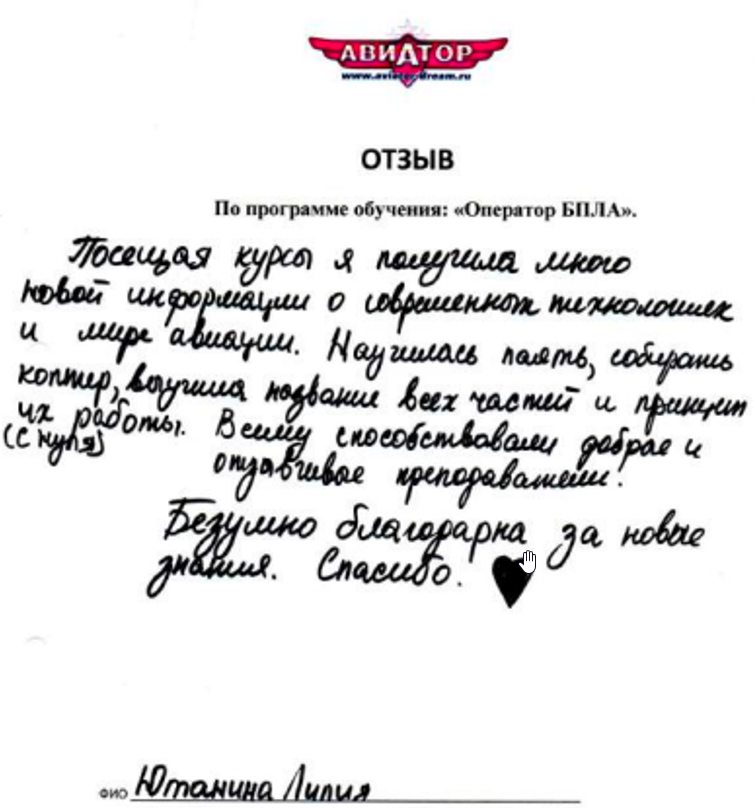 АВИАТОР
www.aviator-dream.ru
ОТЗЫВ
По программе обучения: «Оператор БПЛА».
Посещая курсы я получила много
новой информации о современных технологиях
и мире авиации. Научилась паять, собирать
коптер, выучила название всех частей и принцип
их работы. Всему способствовали добрые и
(с нуля)
отзывчивые преподаватели.
Безумно благодарна за новые
знания. Спасибо.
ФИО Ютанина Лилия